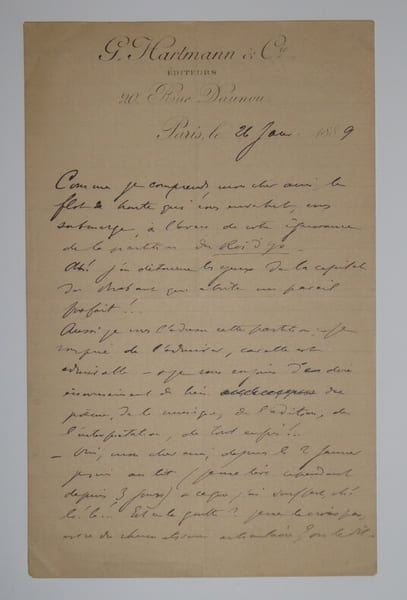 G. Hartmann & Cie
EDITEURS
20, Rue Daunou
Paris, le 26 Janv. 1889
Comme je comprends, mon cher ami, le
flot de honte qui vous envahit, vous
submerge, à l'aveu de votre ignorance
de la partition du Roi d'Ys.
Ah! j'en détourne les yeux de la capitale
du Brabant qui abrite un pareil
forfait!..
Aussi je vous l'adresse cette partition. Je
de l'admirer, car elle est
admirable - et je vous enjoins d'en dire
de bien du
poème, de la musique, de l'édition, de
l'interprétation, de tout enfin!..
- Oui, mon cher ami, depuis le 2 Janvier
je suis au lit (je me lève cependant
depuis 3 jours) et ce que j'ai souffert, oh!
là là... Est-ce la goutte? je ne le crois pas,
articulaire? on le dit.